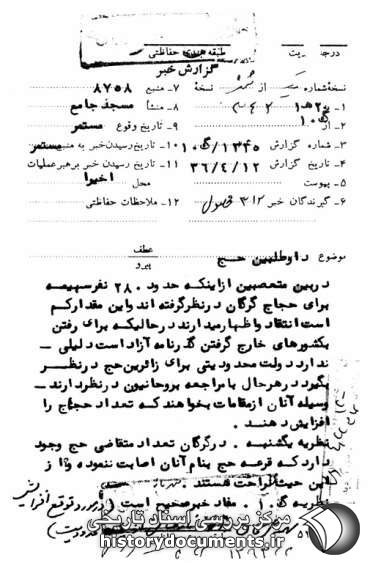 درجه
طبقه بندی حفاظتی
گزارش خبر
نسخه شماره از نسخه
۱- به ۲۰هـ۱
۲- از گ۱۰
۳- شماره گزارش ۱۳۴۵/گ۱۰
۴- تاریخ گزارش ۳۶/۴/۱۲
۵- پیوست
۶- گیرندگان خبر ۳۱۲
۷- منبع ۸۷۵۸
۸- منشأ مسجد جامع
۹- تاریخ وقوع مستمر
۱۰- تاریخ رسیدن خبر به منبع مستمر
۱۱- تاریخ رسیدن خبر برهبر عملیات
محل اخیرا
۱۲- ملاحظات حفاظتی
موضوع داوطلبین حج
عطف
پیرو
دربین متعصبین ازاینکه حدود ۲۸۰ نفرسهمیه
برای حجاج گرگان درنظرگرفته اند واین مقدارکم
است انتقاد واظهارمیدارند درحالیکه برای رفتن
بکشورهای خارج گرفتن گذرنامه آزاد است دلیلی -
ندارد دولت محدودیتی برای زائرین حج درنظر
بگیرد درهرحال بامراجعه بروحانیون درنظردارند -
وسیله آنان ازمقامات بخواهند که تعداد حجاج را
افزایش دهند.
نظریه یکشنبه . درگرگان تعداد متقاضی حج وجود
دارد که قرعه حج بنام آنان اصابت ننموده و از
این حیث ناراحت هستند.
نظریه گ۱۰. مفاد خبرصحیح است (در مورد توقع افزایش
مرکز بررسی اسناد تاریخی
historydocuments.ir